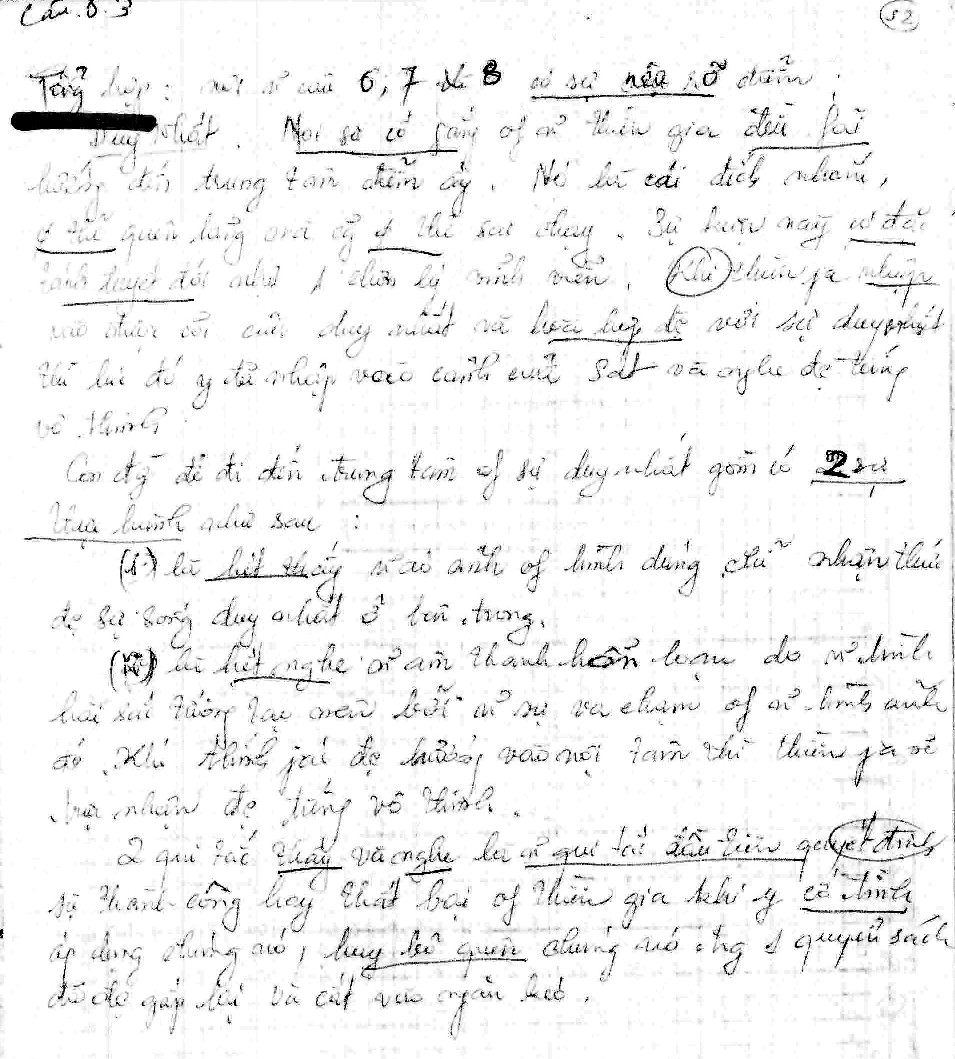 Câu.8.3 52
Tổng hợp : với n câu 6, 7 và 8 có sự nêu rõ điểm
Duy nhất. Mọi sự cố gắng of n thiền gia đều fải
hướng đến trung tâm điểm ấy. Nó là cái đích nhắm,
ý thể quên lãng mà cg ý thể sai chạy. Sự kiện này có đặc
tánh tuyệt đối như 1 chân lý vĩnh viễn. Khi thiền ja nhập
vào được cõi của duy nhất và hoà hợp đc với sự duy nhất
thì lúc đó y đã nhập vào cảnh của Sat và nghe đc tiếng
vô thinh
Con đg để đi đến trung tâm of sự duy nhất gồm có 2 sự
thực hành như sau :
(1.) là hết thấy n ảo ảnh of hình dáng chỉ nhận thức
đc sự sống duy nhất ở bên trong.
là hết nghe n âm thanh hỗn loạn do n hình
hài sai tướng tạo nên bởi n sự va chạm of n hình ảnh
đó. Khi thính jác đc hướng vào nội tâm thì thiền ja sẽ
trực nhận đc tiếng vô thinh.
2 qui tắc thấy và nghe là n qui tắc đầu tiên quyết định
sự thành công hay thất bại of thiền gia khi y cố tình
áp dụng chúng nó, hay bỏ quên chúng nó trg 1 quyển sách
đã đc gấp lại và cất vào ngăn kéo.